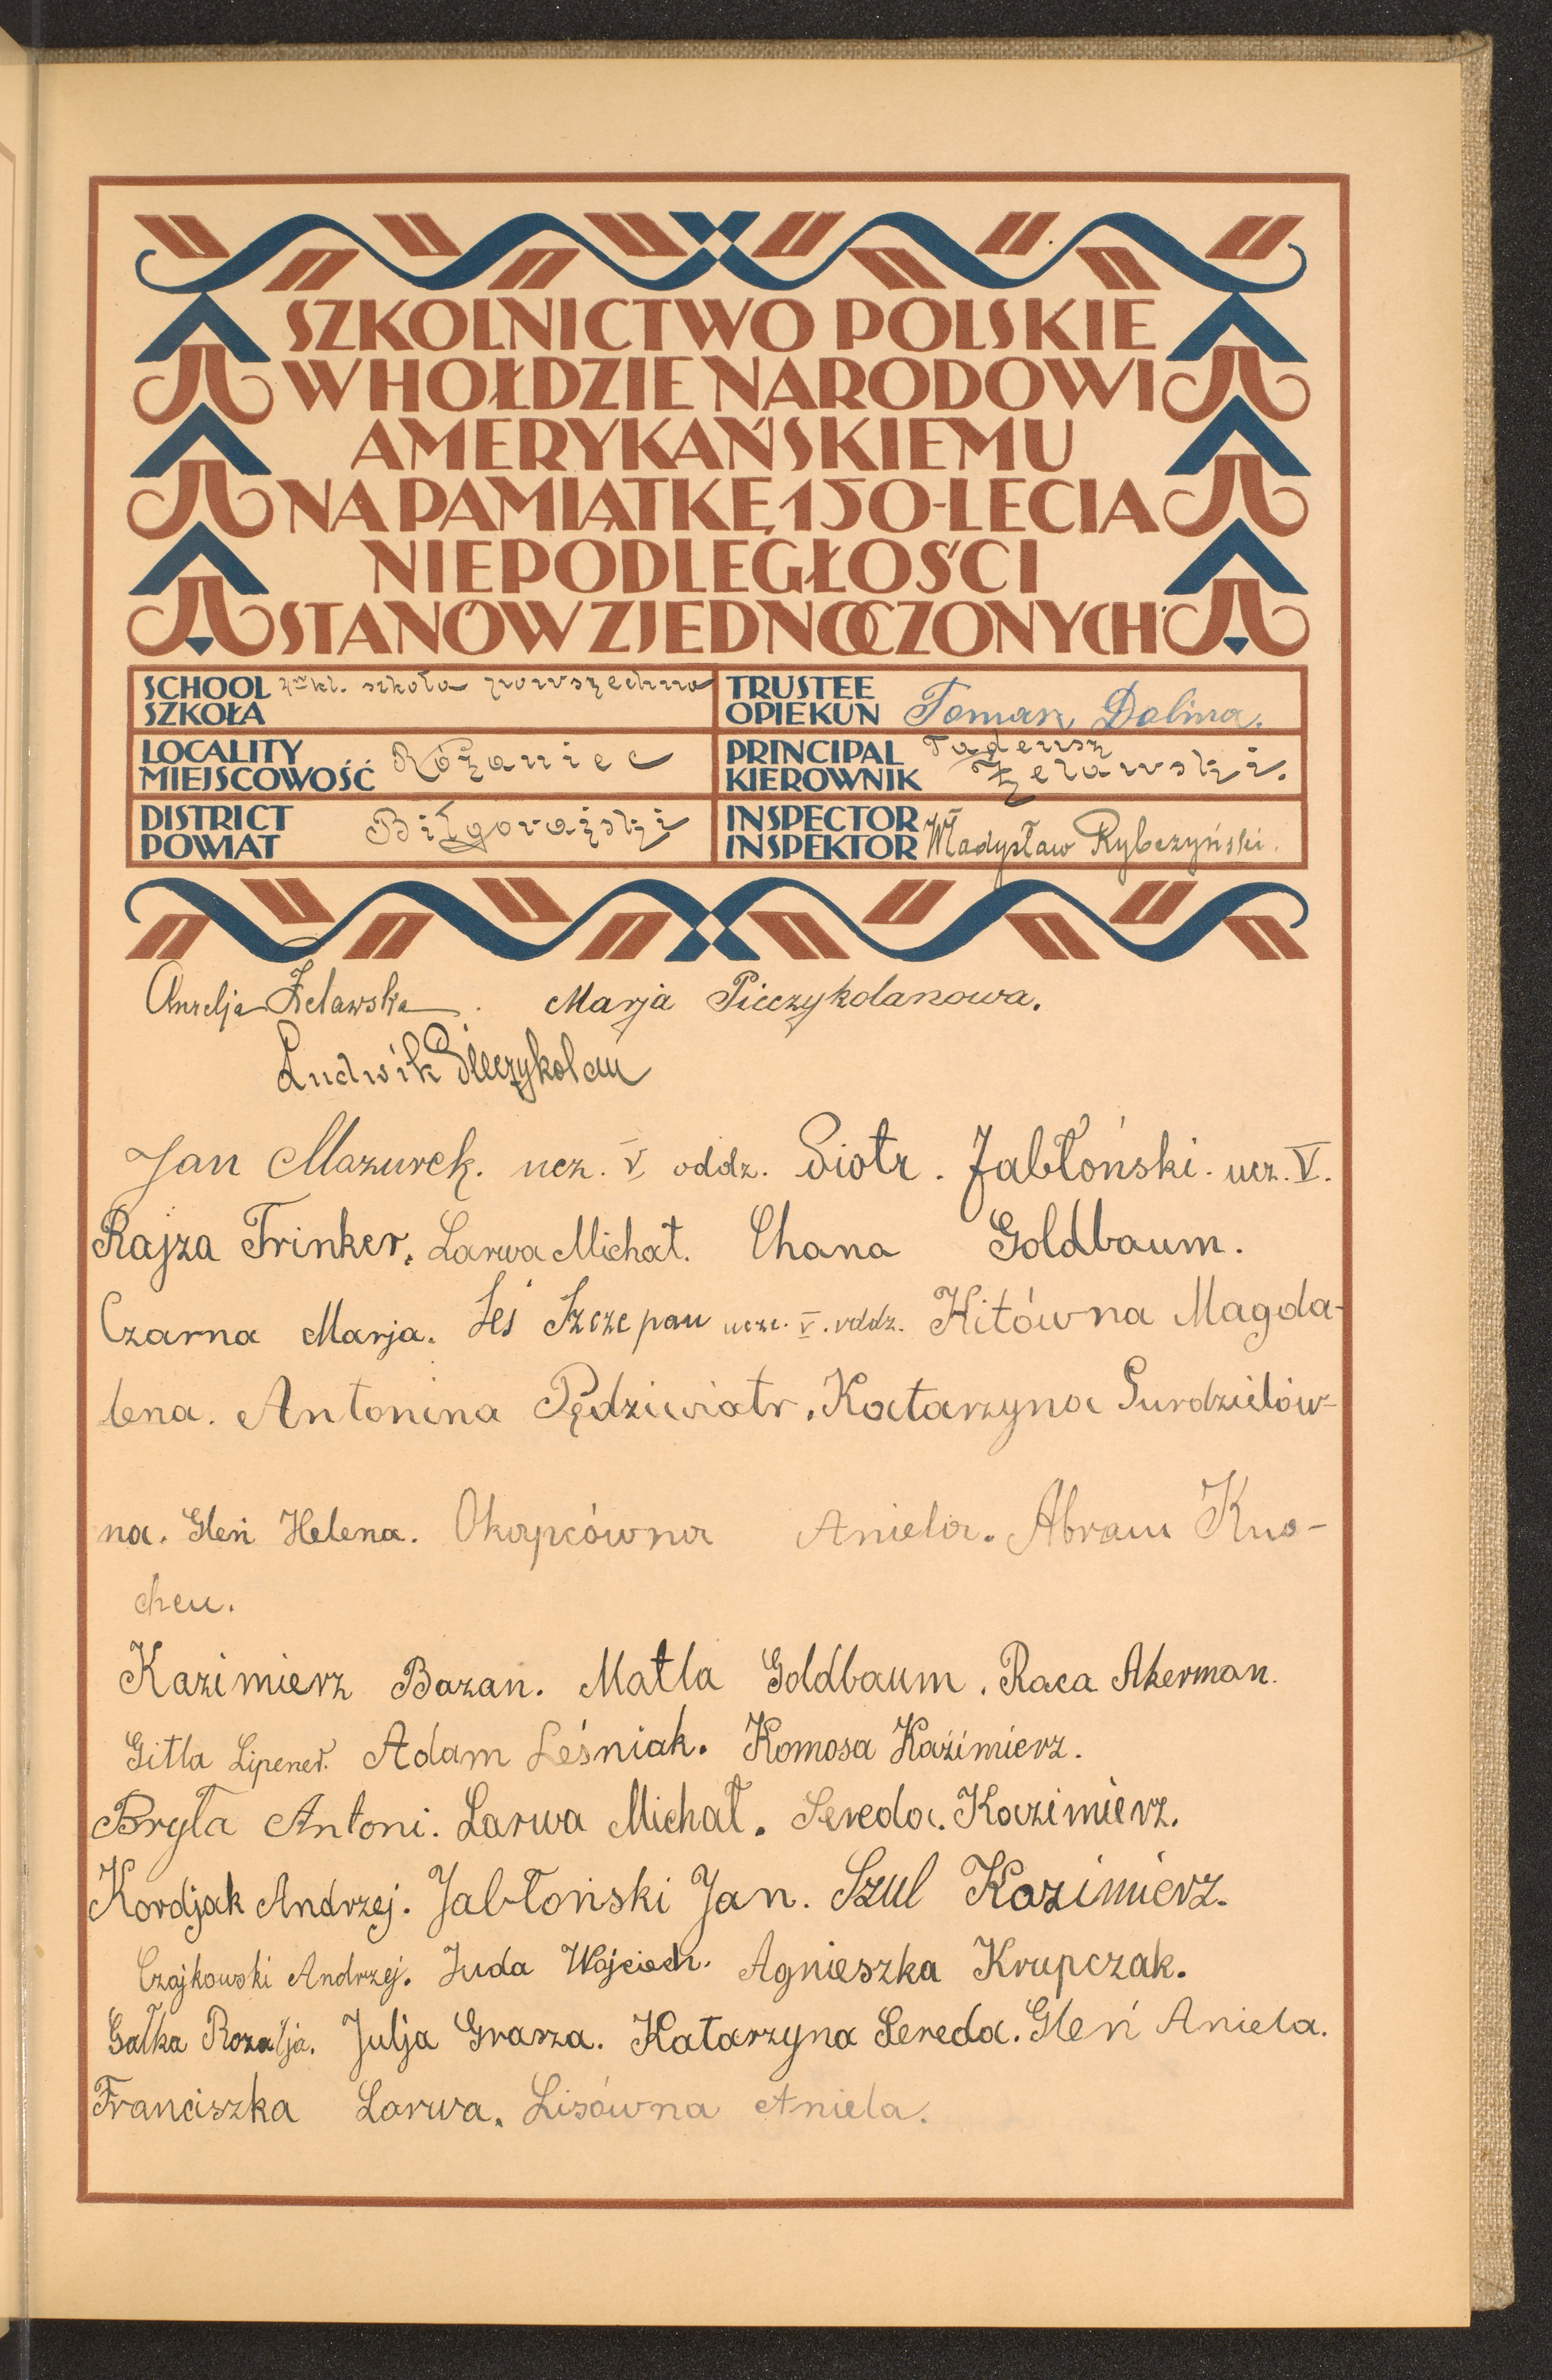 SZKOLNICTWO POLSKIE
W HOŁDZIE NARODOWI
AMERYKAŃSKIEMU
NA PAMIĄTKĘ 150-LECIA
NIEPODLEGŁOŚCI
STANÓW ZJEDNOCZONYCH
SCHOOL
SZKOŁA kl. szkoła powszechna
TRUSTEE
OPIEKUN Toman Dolina.
LOCALITY
MIEJSCOWOŚĆ Różaniec
PRINCIPAL Tadeusz
KIEROWNIK Żeławski.
DISTRICT
POWIAT Biłgorajski
INSPECTOR
INSPEKTOR Władysław Rybczyński.
Aurelja Żeławska. Marja Pieczykolanowa.
Ludwik Pieczykolan
Jan Mazurek. ucz. V oddz. Piotr. Jabłoński. ucz. V.
Rajza Trinker. Larwa Michał. Chana Goldbaum.
Czarna Marja. Leś Szczepan ucz. V. oddz. Kitówna Magda-
lena. Antonina Pędziwiatr. Katarzyna Gurdzielów-
na. Gleń Helena. Okapcówna Aniela. Abram Kno-
chen.
Kazimierz Bazan. Matla Goldbaum. Raca Akerman.
Gitla Lipener. Adam Leśniak. Komosa Kazimierz.
Bryła Antoni. Larwa Michał. Sereda. Kazimierz.
Kordjak Andrzej. Jabłoński Jan. Szul Kazimierz.
Czajkowski Andrzej. Juda Wojciech. Agnieszka Krupczak.
Gałka Rozalja. Julja Grasza. Katarzyna Sereda. Gleń Aniela.
Franciszka Larwa. Lisówna Aniela.